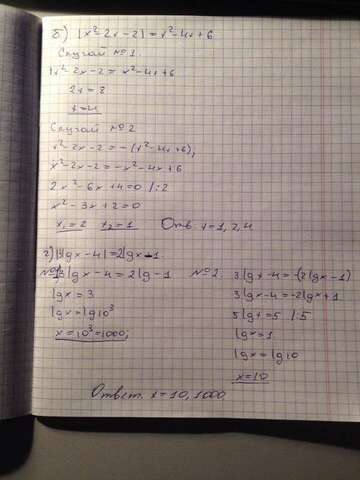 б) |x²-2x-2|=x²-4x+6
Случай №1.
x²-2x-2=x²-4x+6
2x=8
x=4
Случай №2
x²-2x-2=-(x²-4x+6);
x²-2x-2=-x²-4x+6
2x²-6x+4=0 /:2
x²-3x+2=0
x₁=2 x₂=1 Отв. x=1,2,4
г) |3lgx-4|=2lgx-1
№1. 3lgx-4=2lg-1
lgx=3
lgx=lg10³
x=10³=1000;
№2. 3lgx-4=-(2lgx-1)
3lgx-4=-2lgx+1
5lgx=5 /:5
lgx=1
lgx=lg10
x=10
Ответ. x=10, 1000